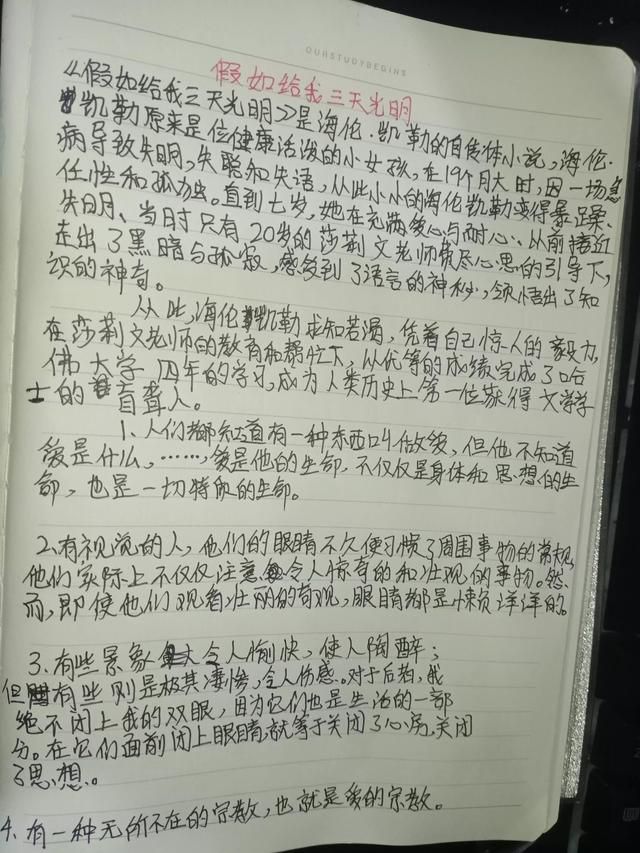 OURSTUDYBEGINS
假如给我三天光明
《假如给我三天光明》是海伦·凯勒的自传体小说,海伦·
凯勒原来是位健康活泼的小女孩,在19个月大时,因一场急
病导致失明,失聪和失语,从此小小的海伦凯勒变得暴躁、
任性和孤独。直到七岁,她在充满爱心与耐心、从前接近
失明、当时只有20岁的莎莉文老师费尽心思的引导下,
走出了黑暗与孤寂,感受到了语言的神秘,领悟出了知
识的神奇。
从此,海伦凯勒求知若渴,凭着自己惊人的毅力,
在莎莉文老师的教育和帮忙下,从优等的成绩完成了哈
佛大学四年的学习,成为人类历史上第一位获得文学学
士的盲聋人。
1、人们都知道有一种东西叫做爱,但他不知道
爱是什么,……,爱是他的生命,不仅仅是身体和思想的生
命,也是一切特殊的生命。
2、有视觉的人,他们的眼睛不久便习惯了周围事物的常规,
他们实际上不仅仅注意令人惊奇的和壮观的事物。然
而,即使他们观看壮丽的奇观,眼睛都是懒洋洋的。
3、有些景象令人愉快,使人陶醉;
但有些则是极其凄惨,令人伤感。对于后者,我
绝不闭上我的双眼,因为它们也是生活的一部
分。在它们面前闭上眼睛就等于关闭了心房,关闭
了思想。
4、有一种无所不在的宗教,也就是爱的宗教。